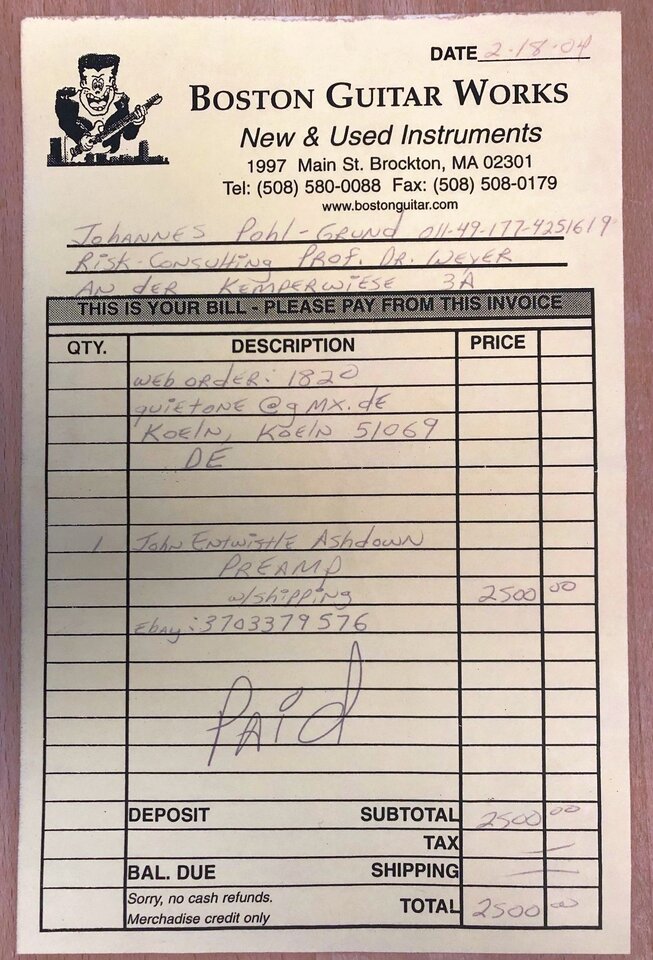 DATE 2-18-04
BOSTON GUITAR WORKS
New & Used Instruments
1997 Main St. Brockton, MA 02301
Tel: (508) 580-0088 Fax: (508) 508-0179
www.bostonguitar.com
JOHANNES POHL-GRUND 011-49-177-4251619
RISK-CONSULTING PROF. DR. WEYER
AN der KEMPERWIESE 3A
THIS IS YOUR BILL - PLEASE PAY FROM THIS INVOICE
QTY. DESCRIPTION PRICE
web order: 1820
quietone@gmx.de
Koeln, Koeln 51069
DE
1 John Entwistle Ashdown
PREAMP
w/shipping 2500 00
ebay: 3703379576
PAid
DEPOSIT SUBTOTAL 2500 00
TAX —
BAL. DUE SHIPPING —
Sorry, no cash refunds.
Merchadise credit only
TOTAL 2500 00